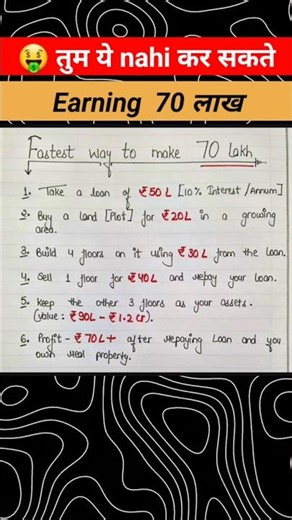 तुम ये nahi कर सकते
Earning 70 लाख
Fastest way to make 70 lakh
1. Take a loan of ₹50L [10% Interest/Annum]
2. Buy a land [Plot] for ₹20L in a growing
area.
3. Build 4 floors on it using ₹30L from the loan.
4. Sell 1 floor for ₹40L and repay your loan.
5. Keep the other 3 floors as your assets.
(Value: ₹90L - ₹1.2 Cr).
6. Profit - ₹70L+ after repaying Loan and you
own real property.